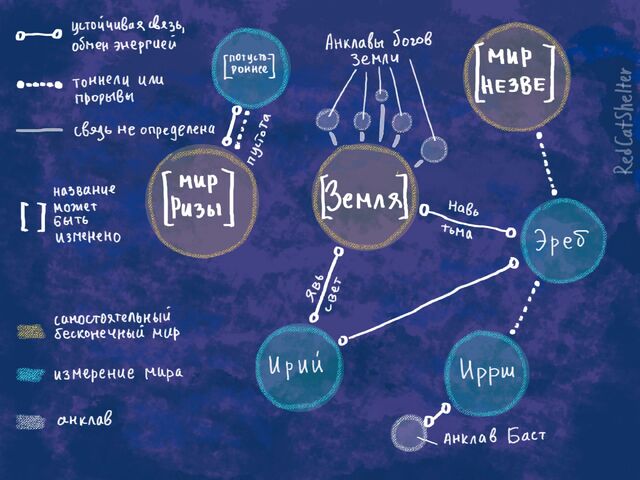 устойчивая связь,
обмен энергией
тоннели или
прорывы
связь не определена
[ ] название
может
быть
изменено
самостоятельный
бесконечный мир
измерение мира
анклав
[потусто-
роннее]
пустота
[мир
Ризы]
Анклавы богов
Земли
[Земля]
[мир
НЕЗВЕ]
Навь
тьма
Эреб
Явь
свет
Ирий
Иррш
Анклав Баст
RedCatShelter